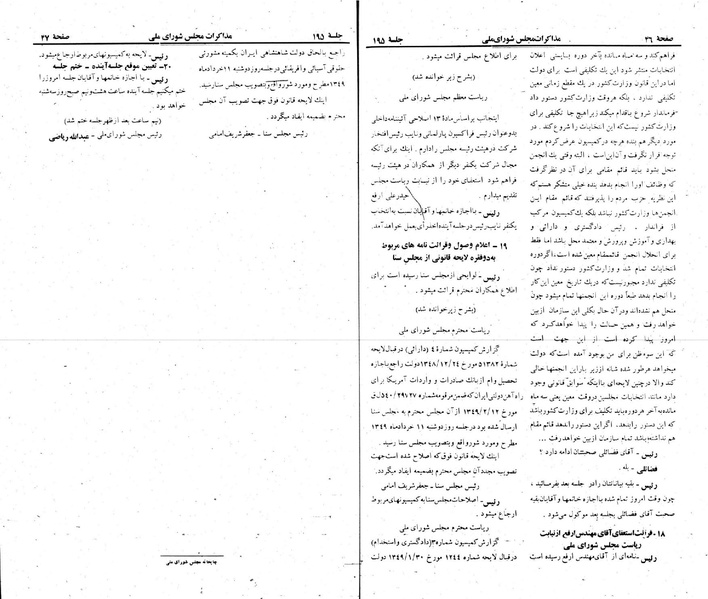 صفحهٔ ۳۶
مذاکرات مجلس شورای ملی
جلسهٔ ۱۹۵
فراهم کند و سه ماه مانده بآخر دوره بایستی اعلان
انتخابات منتشر شود این یك تکلیفی است برای دولت
اما در این قانون وزارت کشور در یك مقطع زمانی معین
تکلیفی ندارد . بلکه هر وقت وزارت کشور دستور داد
فرماندار شروع باقدام میکند زیرا هیچ جا تکلیفی برای
وزارت کشور نیست که این انتخابات را شروع کند . در
مورد دیگر هم بنده هرچه در کمیسیون عرض کردم مورد
توجه قرار نگرفت و آن این است ، البته وقتی یك انجمن
منحل بشود باید قائم مقامی برای آن در نظر گرفت
که وظائف اورا انجام بدهد بنده خیلی متشکر هستم که
این نظریه حزب مردم را پذیرفتند که قائم مقام این
انجمن‌ها وزارت کشور نباشد بلکه یك کمیسیون مرکب
از فرماندار . رئیس دادگستری و دارائی و
بهداری و آموزش و پرورش و معتمد محل باشد اما فقط
برای انحلال انجمن قائم‌مقام معین شده است ، اگر دوره
انتخابات تمام شد و وزارت کشور دستور نداد چون
تکلیفی ندارد مجبور نیست که دریك تاریخ معین این کار
را انجام بدهد طبعاً دوره این انجمنها تمام میشود چون
منحل هم نشده‌اند و در آن حال بکلی این سازمان از بین
خواهد رفت و همین حالت را پیدا خواهد کرد که
امروز پیدا کرده است از این جهت است
که این سوءظن برای من بوجود آمده است که دولت
میخواهد هر طور شده شانه از زیر بار این انجمنها خالی
کند والا در چنین لایحه‌ای با اینکه سوابق قانونی وجود
دارد مانند انتخابات مجلسین در وقت معین یعنی سه ماه
مانده به آخر هر دوره باید تکلیف برای وزارت کشور باشد
که این دستور را بدهد. اگر این دستور را ندهد قائم مقام
هم نداشته باشد تمام سازمان از بین خواهد رفت ...
رئیس - آقای فضائلی صحبتتان ادامه دارد ؟
فضائلی - بله .
رئیس - بقیه بیاناتتان را در جلسه بعد بفرمائید ،
چون وقت امروز تمام شده با اجازه خانمها و آقایان بقیه
صحبت آقای فضائلی بجلسه بعد موکول می‌شود .
۱۸ - قرائت استعفای آقای مهندس ارفع از نیابت
ریاست مجلس شورای ملی
رئیس - نامه‌ای از آقای مهندس ارفع رسیده است
برای اطلاع مجلس قرائت میشود .
(بشرح زیر خوانده شد)
ریاست معظم مجلس شورای ملی
اینجانب بر اساس مادهٔ ۱۳ اصلاحی آئیننامه داخلی
بدو عنوان رئیس فراکسیون پارلمانی و نایب رئیس افتخار
شرکت در هیئت رئیسه مجلس را دارم . اینك برای آنکه
مجال شرکت یکنفر دیگر از همکاران در هیئت رئیسه
فراهم شود استعفای خود را از نیابت ریاست مجلس
تقدیم میدارم . حیدرعلی ارفع
رئیس - با اجازه خانمها و آقایان نسبت به انتخاب
یکنفر نایب رئیس در جلسه آینده اخذ رأی بعمل خواهد آمد.
۱۹ - اعلام وصول و قرائت نامه های مربوط
به دو فقره لایحه قانونی از مجلس سنا
رئیس - لوایحی از مجلس سنا رسیده است برای
اطلاع همکاران محترم قرائت میشود .
(بشرح زیر خوانده شد)
ریاست محترم مجلس شورای ملی
گزارش کمیسیون شمارهٔ ۴ (دارائی) در قبال لایحه
شمارهٔ ۵۱۳۸۲ مورخ ۱۳۴۸/۱۲/۲۴ دولت راجع باجازه
تحصیل وام از بانك صادرات و واردات آمریکا برای
راه آهن دولتی ایران که ضمن مرقومه شماره ۵۴۰/۲۹۷۲۷ ق
مورخ ۱۳۴۹/۲/۱۲ از آن مجلس محترم به مجلس سنا
ارسال شده بود در جلسه روز دوشنبه ۱۱ خرداد ماه ۱۳۴۹
مطرح و مورد شور واقع و بتصویب مجلس سنا رسید .
اینك لایحه قانون فوق که اصلاح شده است جهت
تصویب مجدد آن مجلس محترم بضمیمه ایفاد میگردد.
رئیس مجلس سنا - جعفر شریف امامی
رئیس - اصلاحات مجلس سنا به کمیسیونهای مربوط
ارجاع میشود .
ریاست محترم مجلس شورای ملی
گزارش کمیسیون شماره ۳ (دادگستری و استخدام)
در قبال لایحه شماره ۱۲۴۴ مورخ ۱۳۴۹/۱/۳۰ دولت
جلسهٔ ۱۹۵
مذاکرات مجلس شورای ملی
صفحهٔ ۳۷
راجع بالحاق دولت شاهنشاهی ایران بکمیته مشورتی
حقوقی آسیائی و افریقائی در جلسه روز دوشنبه ۱۱ خرداد ماه
۱۳۴۹ مطرح و مورد شور واقع و بتصویب مجلس سنا رسید.
اینك لایحه قانون فوق جهت تصویب آن مجلس
محترم بضمیمه ایفاد میگردد .
رئیس مجلس سنا - جعفر شریف امامی
رئیس - لایحه به کمیسیونهای مربوط ارجاع میشود.
۲۰- تعیین موقع جلسه آینده - ختم جلسه
رئیس - با اجازه خانمها و آقایان جلسه امروز را
ختم میکنیم جلسه آینده ساعت هشت و نیم صبح روز سه‌شنبه
خواهد بود .
(نیم ساعت بعد از ظهر جلسه ختم شد)
رئیس مجلس شورای ملی - عبدالله ریاضی
چاپخانه مجلس شورای ملی